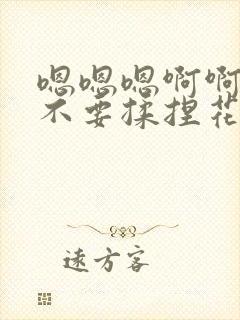 嗯嗯嗯啊啊
不要揉捏花
遠方客